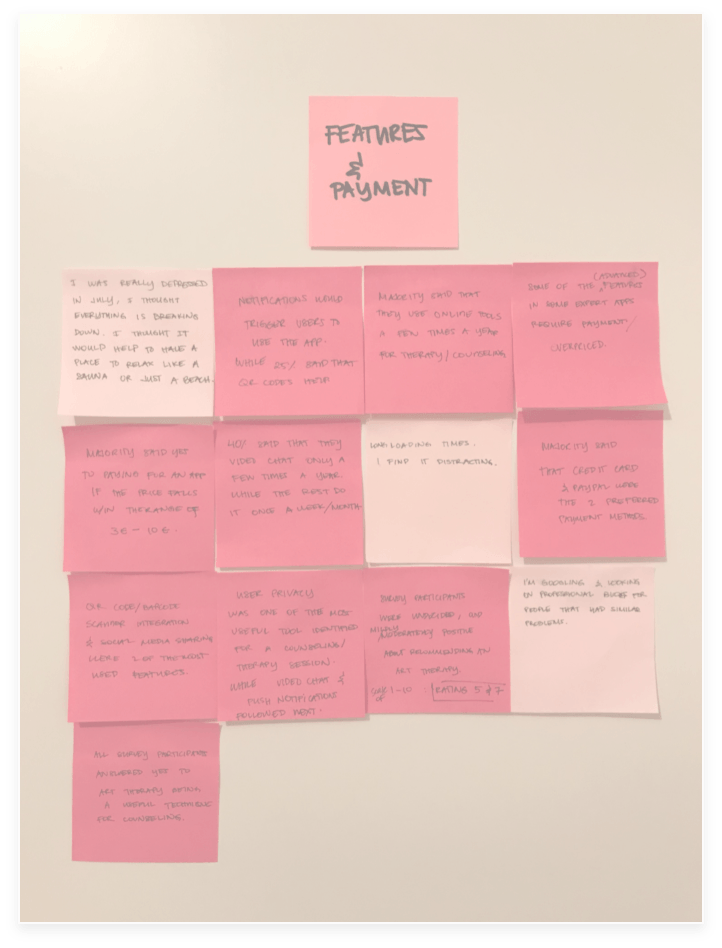 FEATURES
&
PAYMENT
I WAS REALLY DEPRESSED
IN JULY, I THOUGHT
EVERYTHING IS BREAKING
DOWN. I THOUGHT IT
WOULD HELP TO HAVE A
PLACE TO RELAX LIKE A
SAUNA OR JUST A BEACH.
NOTIFICATIONS WOULD
TRIGGER USERS TO
USE THE APP.
WHILE 25% SAID THAT
QR CODES HELP
MAJORITY SAID THAT
THEY USE ONLINE TOOLS
A FEW TIMES A YEAR
FOR THERAPY/COUNSELING
(ADVANCED)
SOME OF THE FEATURES
IN SOME EXPERT APPS
REQUIRE PAYMENT/
OVERPRICED.
MAJORITY SAID YES
TO PAYING FOR AN APP
IF THE PRICE FALLS
W/IN THE RANGE OF
3€ - 10€.
40% SAID THAT THEY
VIDEO CHAT ONLY A
FEW TIMES A YEAR
WHILE THE REST DO
IT ONCE A WEEK/MONTH.
LONG LOADING TIMES.
I FIND IT DISTRACTING.
MAJORITY SAID
THAT CREDIT CARD
& PAYPAL WERE
THE 2 PREFERRED
PAYMENT METHODS.
QR CODE/BARCODE
SCANNER INTEGRATION
& SOCIAL MEDIA SHARING
WERE 2 OF THE MOST
USED FEATURES.
USER PRIVACY
WAS ONE OF THE MOST
USEFUL TOOL IDENTIFIED
FOR A COUNSELING/
THERAPY SESSION.
WHILE VIDEO CHAT &
PUSH NOTIFICATION
FOLLOWED NEXT.
SURVEY PARTICIPANTS
WERE UNDECIDED, AND
MILDLY
MODERATELY POSITIVE
ABOUT RECOMMENDING AN
ART THERAPY.
1-10 : RATING 5 & 7
OF
I'M GOOGLING & LOOKING
ON PROFESSIONAL BLOGS FOR
PEOPLE THAT HAD SIMILAR
PROBLEMS.
ALL SURVEY PARTICIPANTS
ANSWERED YES TO
ART THERAPY BEING
A USEFUL TECHNIQUE
FOR COUNSELING.